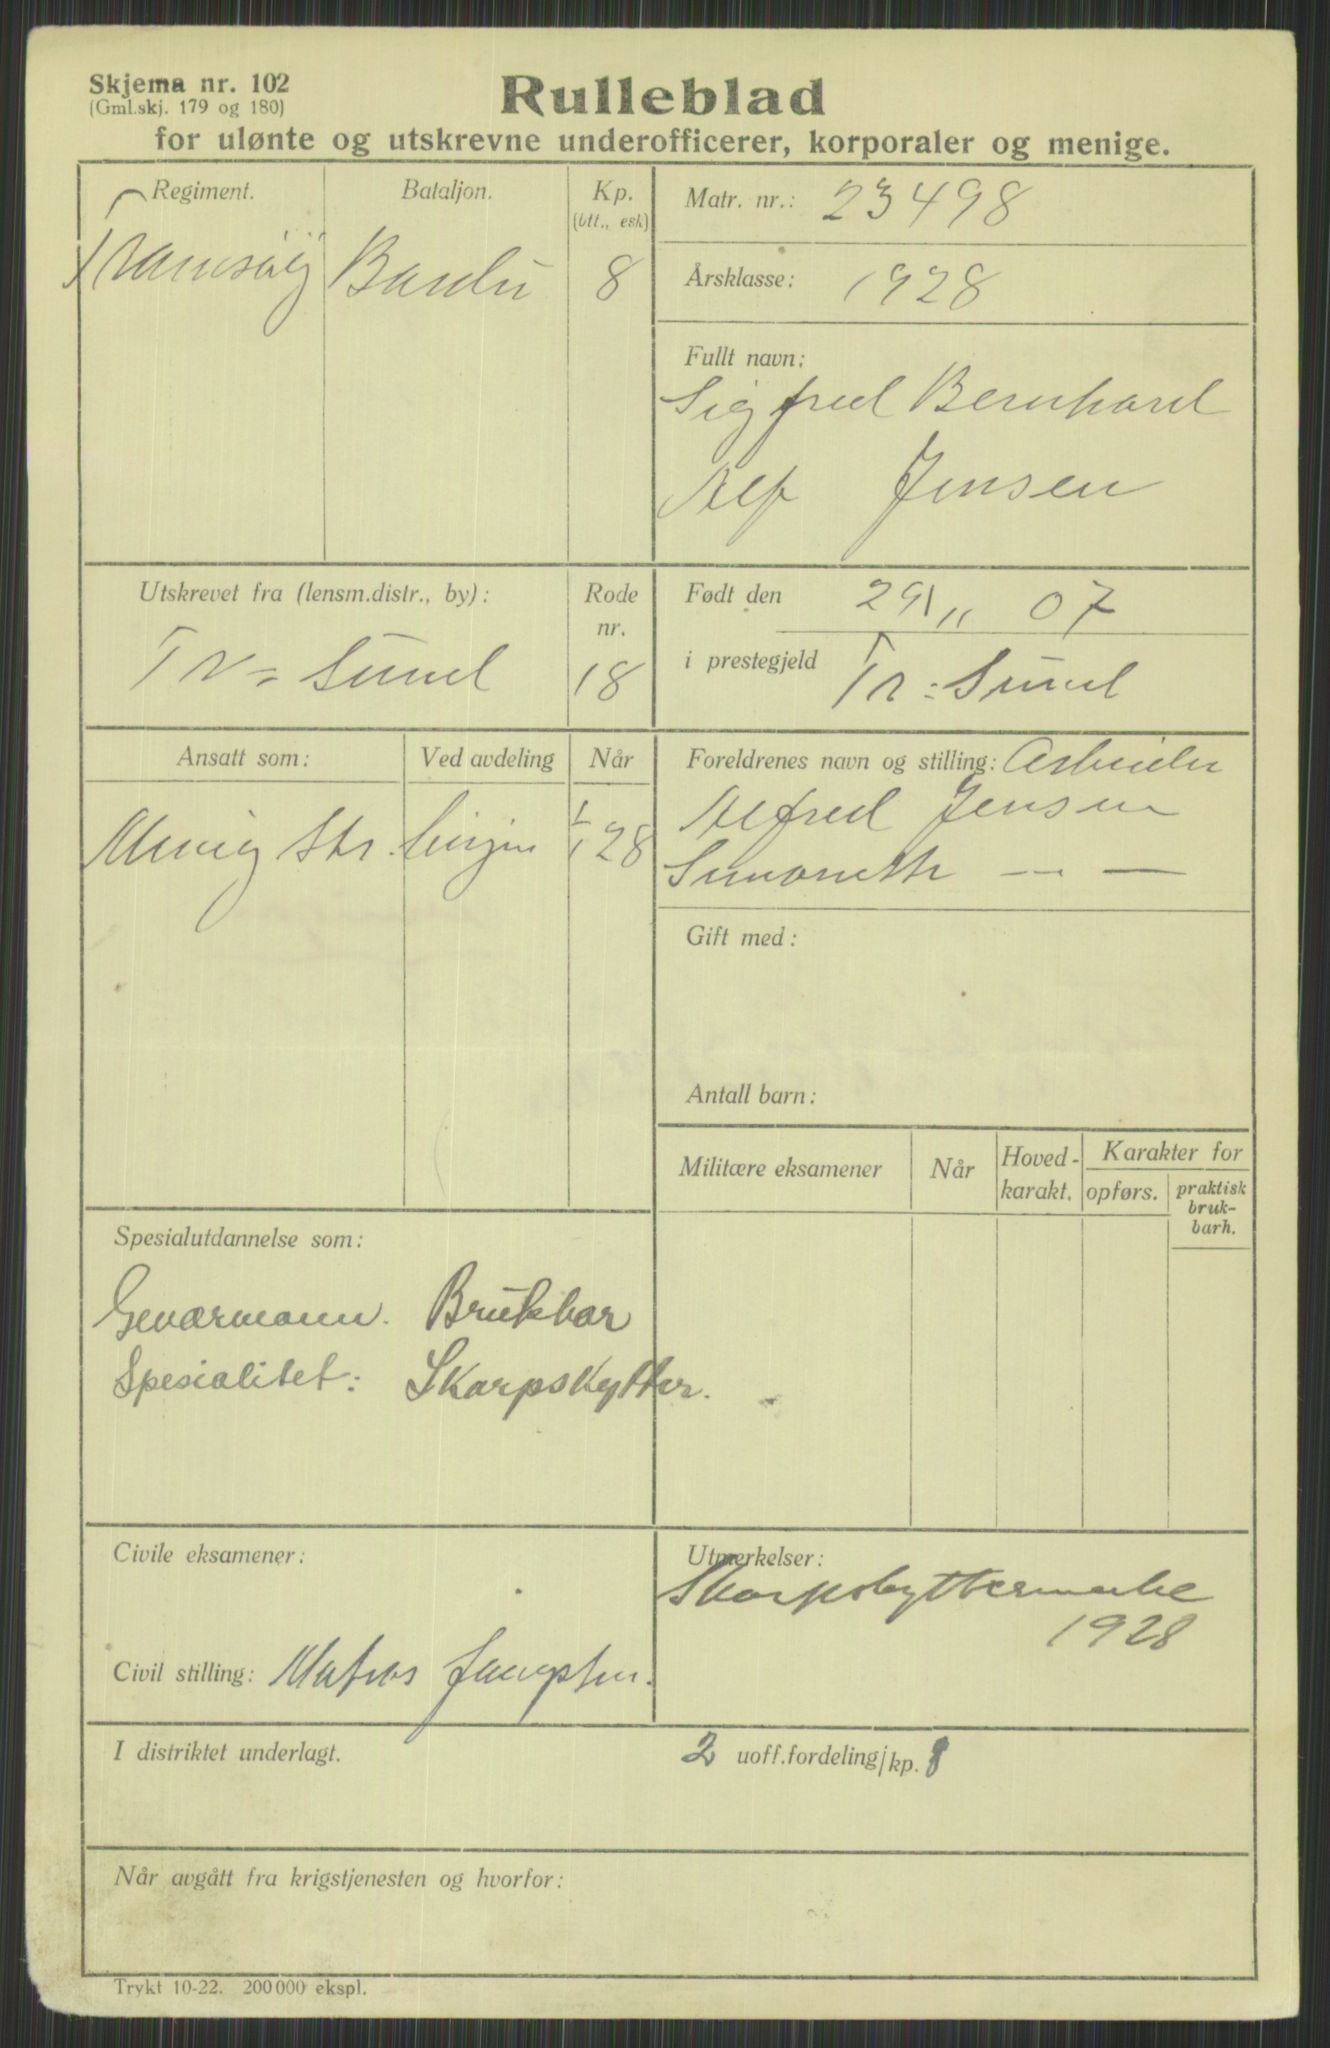 Skjema nr. 102
(Gml.skj. 179 og 180)
Rulleblad
for ulønte og utskrevne underofficerer, korporaler og menige.
Regiment. Bataljon. Kp. (btt., esk)
Bardu 8
Matr. nr.: 23498
Årsklasse: 1928
Fullt navn:
Sigfred Bernhard
Alf Jensen
Utskrevet fra (lensm.distr., by): Rode nr.
Tr=Sund 18
Født den 29/11 07
i prestegjeld Tr:Sund
Ansatt som: Ved avdeling Når
Menig Str. linjen 1/1 28
Foreldrenes navn og stilling: Arbeider
Alfred Jensen
— —
Gift med:
Antall barn:
Militære eksamener Når Hoved-karakt. Karakter for
opførs. praktisk bruk-barh.
Spesialutdannelse som:
Geværmann. Brukbar
Spesialitet: Skarpskytter.
Civile eksamener:
Civil stilling: Matros
Utmerkelser:
Skarpskyttermerke
1928
I distriktet underlagt. 2 uoff.fordeling/kp. 8
Når avgått fra krigstjenesten og hvorfor:
Trykt 10-22. 200 000 ekspl.